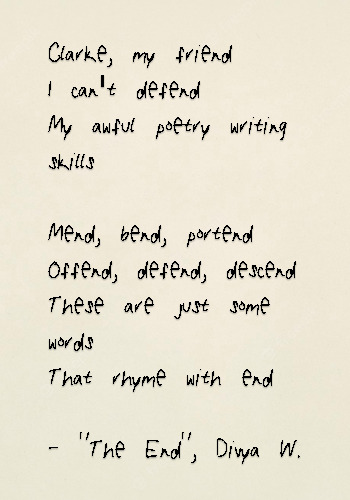 Clarke, my friend
I can't defend
My awful poetry writing
skills
Mend, bend, portend
Offend, defend, descend
These are just some
words
That rhyme with end
- "The End", Divya W.